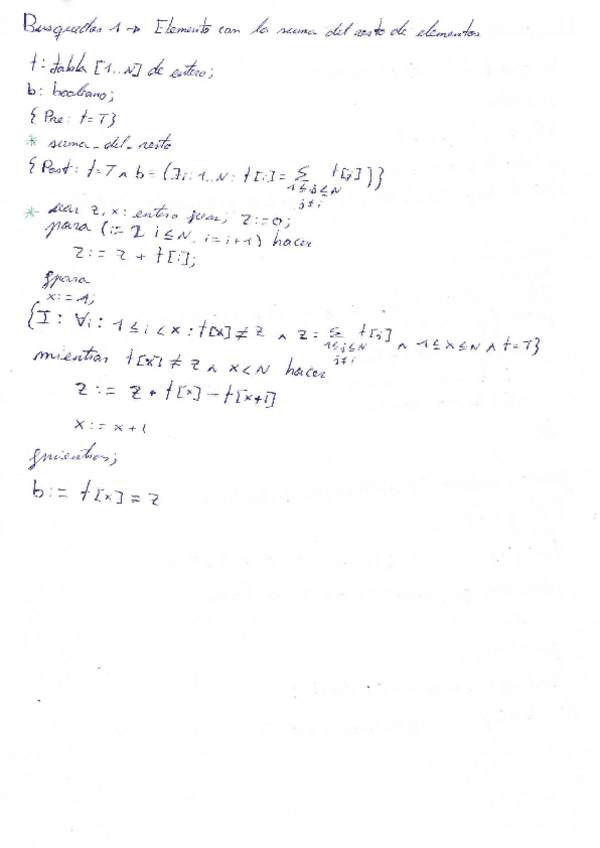 Busquedas 1 → Elemento con la suma del resto de elementos
t: tabla [1..N] de entero;
b: booleano;
{Pre: t=T}
* suma_del_resto
{Post: t=T ∧ b = (∃i: 1..N: t[i] = Σ t[j])}
1≤j≤N
j≠i
* var z, x: entero fvar; z:=0;
para (i:= 2 i≤N, i=i+1) hacer
z:= z + t[i];
fpara
x:=1;
{I: ∀i: 1≤i<x: t[x]≠z ∧ z= Σ t[j] ∧ 1≤x≤N ∧ t=T}
1≤j≤N
j≠i
mientras t[x]≠z ∧ x<N hacer
z:= z + t[x] - t[x+1]
x:= x+1
fmientras;
b:= t[x] = z